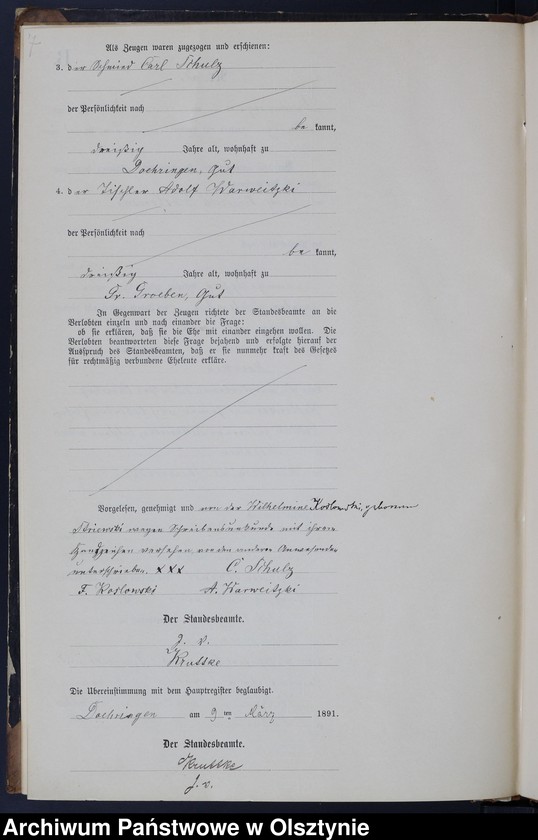 Als Zeugen waren zugezogen und erschienen:
3. der Schmied Carl Schulz
der Persönlichkeit nach
be kannt,
dreißig Jahre alt, wohnhaft zu
Doehringen, Gut
4. der Tischler Adolf Karweitzki
der Persönlichkeit nach
be kannt,
dreißig Jahre alt, wohnhaft zu
Gr. Groeben, Gut
In Gegenwart der Zeugen richtete der Standesbeamte an die
Verlobten einzeln und nach einander die Frage:
ob sie erklären, daß sie die Ehe mit einander eingehen wollen. Die
Verlobten beantworteten diese Frage bejahend und erfolgte hierauf der
Ausspruch des Standesbeamten, daß er sie nunmehr kraft des Gesetzes
für rechtmäßig verbundene Eheleute erkläre.
Vorgelesen, genehmigt und von der Wilhelmine Koslowski, geborenen
wegen Schreibensunkunde mit ihrem
Handzeichen versehen von den anderen Anwesenden
unterschrieben. xxx C. Schulz
F. Koslowski A. Karweitzki
Der Standesbeamte.
J. V.
Die Übereinstimmung mit dem Hauptregister beglaubigt.
Doehringen am 9 ten März 1891.
Der Standesbeamte.
J. V.
Archiwum Państwowe w Olsztynie